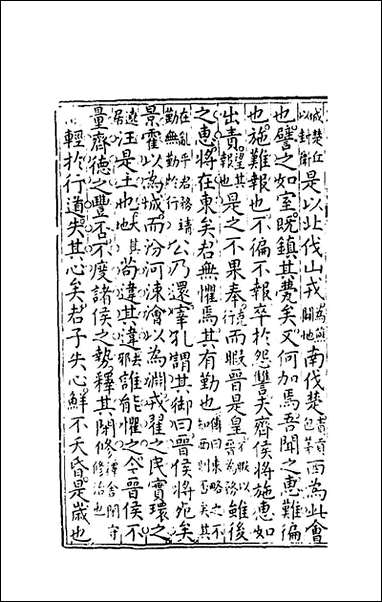 城楚丘以封衛是以北伐山戎為燕闢地南伐楚責貢包茅西為此會
也譬之如室既鎮其甍矣又何加焉吾聞之惠難徧
也施難報也不徧不報卒於怨讐夫齊侯將施惠如
出責望其報也是之不果奉而暇晉是皇不暇以晉為務雖後
之惠將在東矣君無懼焉其有勤也傳曰東略之不知西則否矣其
在亂乎君務靖勤無勤於行公乃還宰孔謂其御曰晉侯將死矣
景霍以為城而汾河涑澮以為淵戎翟之民實環之
汪是土也大其地尚違其違邪誰能懼之今晉侯不
量齊德之豐否不度諸侯之勢釋其閉修釋舍閉守修治也
輕於行道失其心矣君子失心鮮不夭昏是歲也